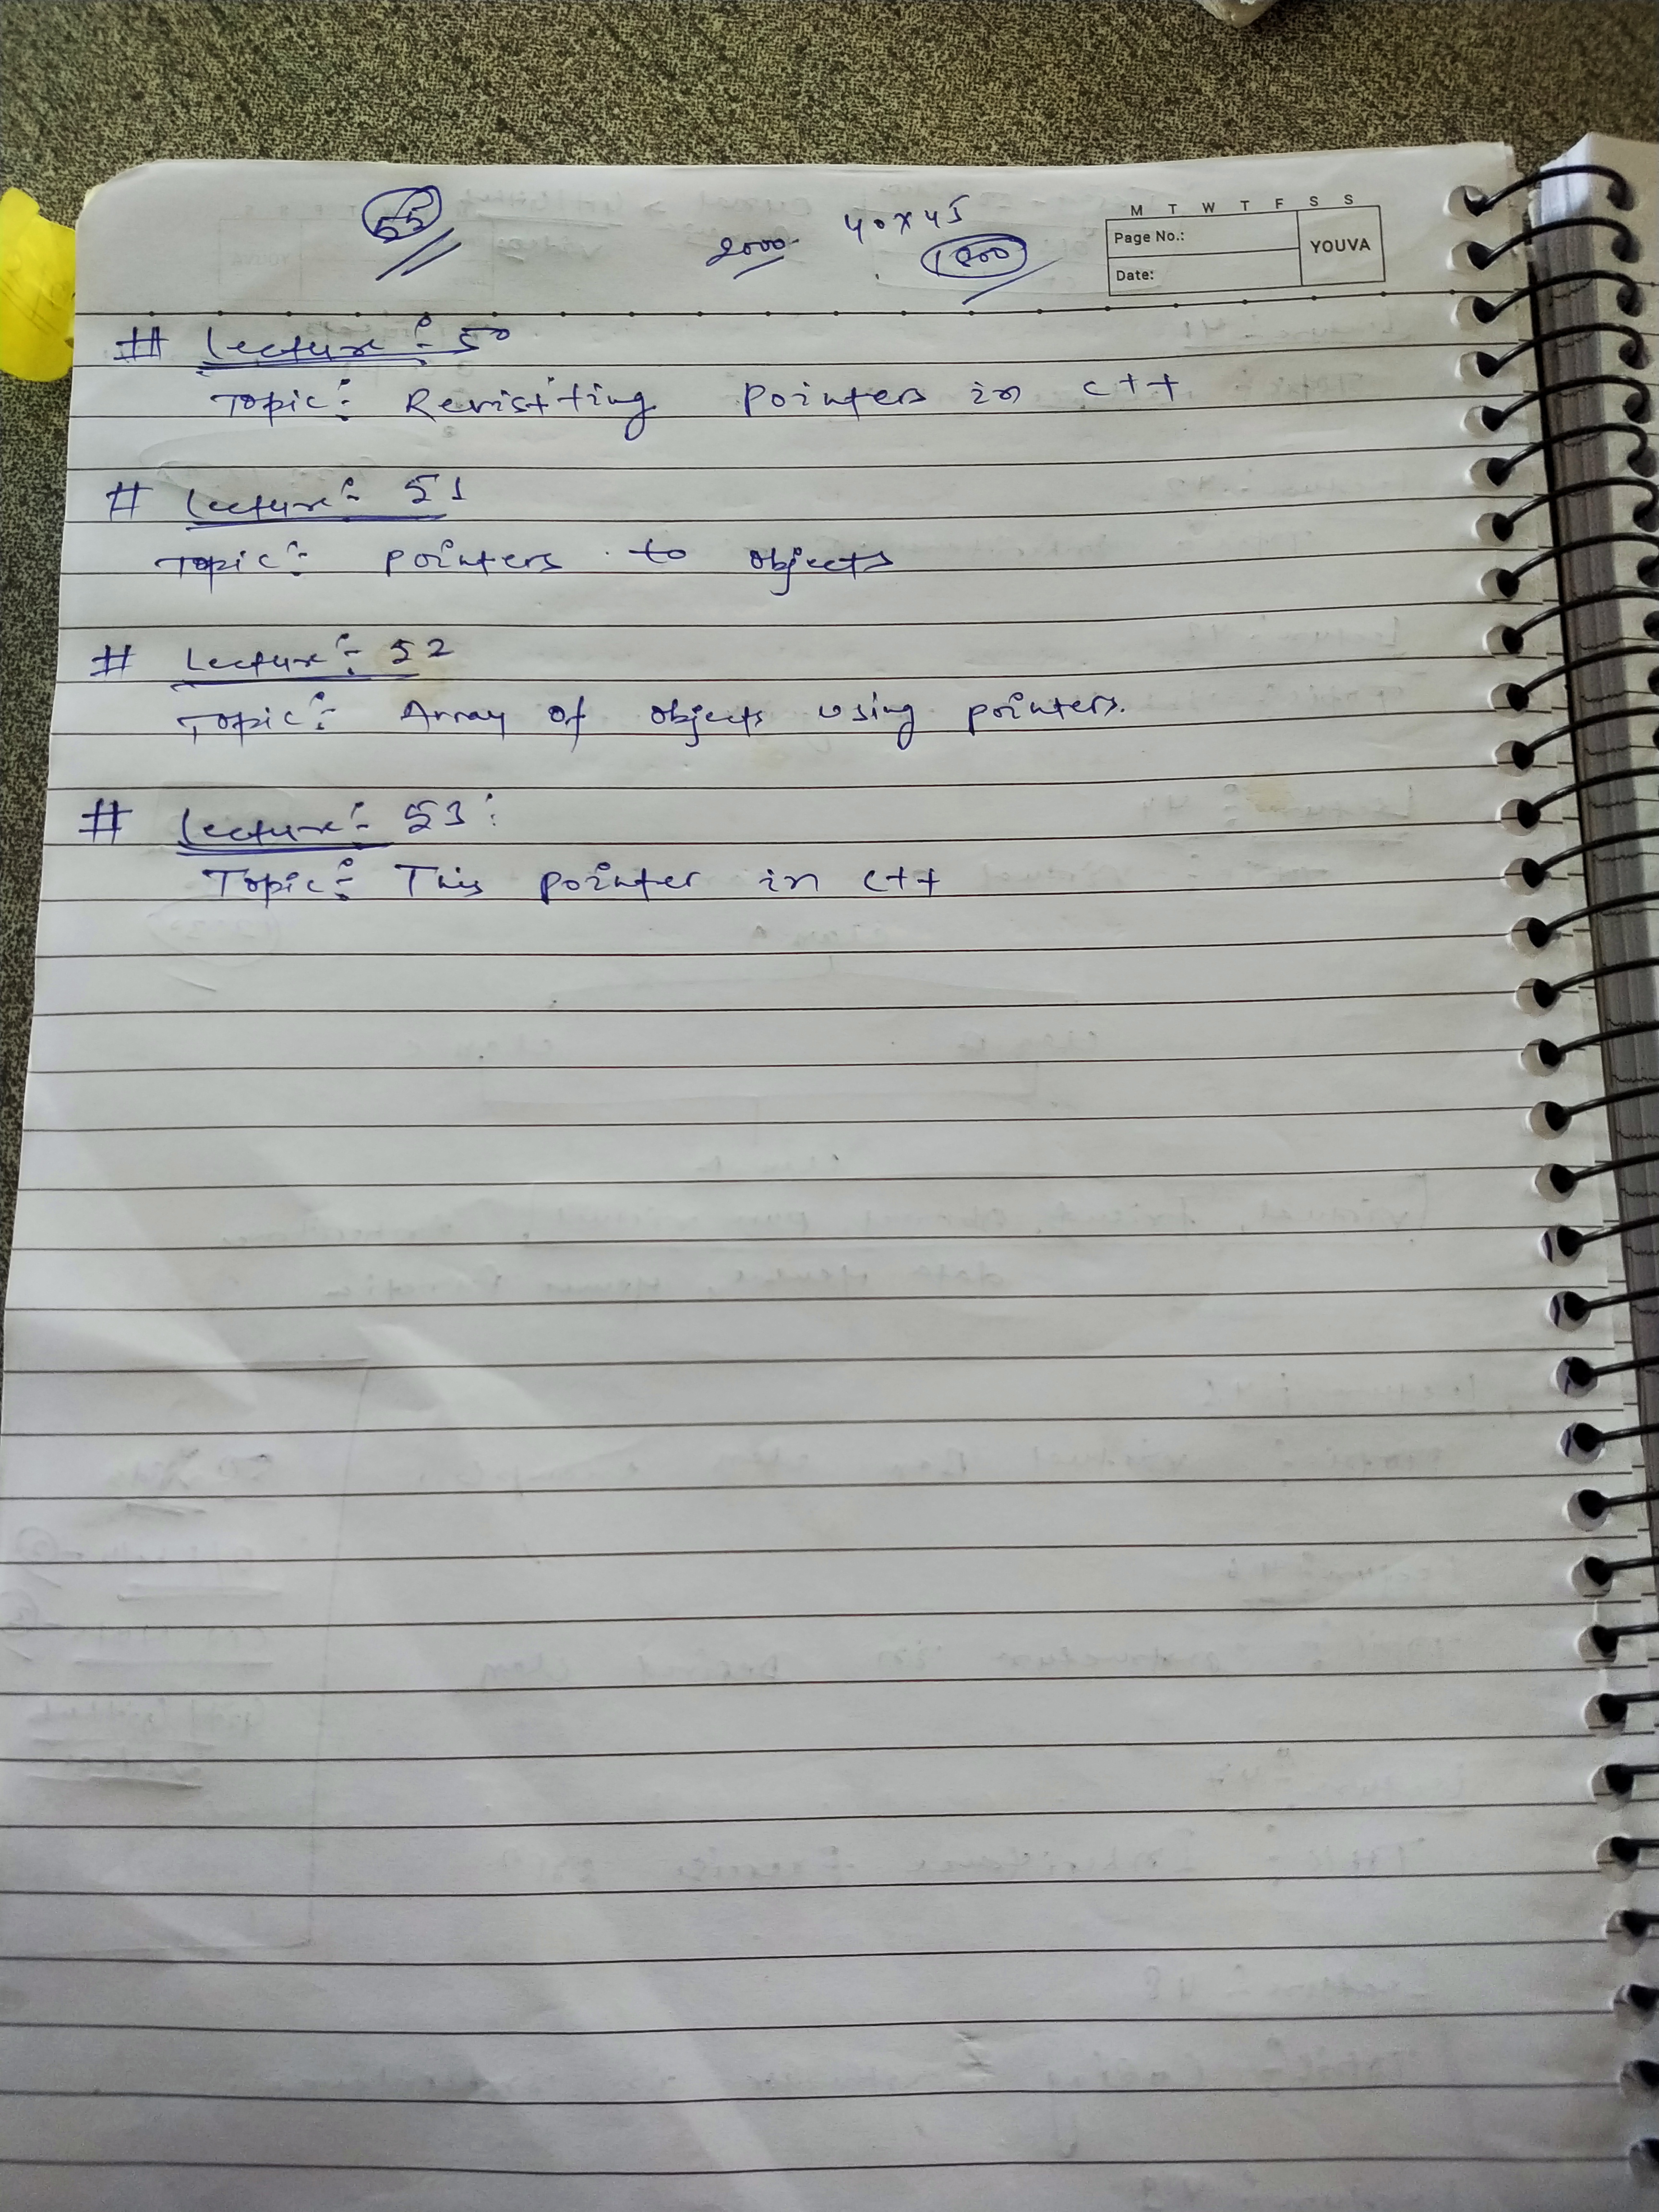 55
2000
40x45
1800
M T W T F S S
Page No.:
YOUVA
Date:
# Lecture:- 50
Topic:- Revisiting Pointers in C++
# Lecture:- 51
Topic:- Pointers to objects
# Lecture:- 52
Topic:- Array of objects using pointers.
# Lecture:- 53:
Topic:- This pointer in C++